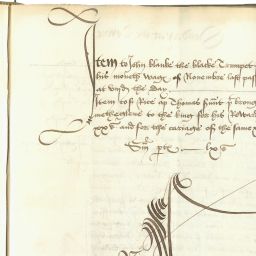 Item to John Blanke the blacke Trumpet
his moneth wage of Novembre last pas
at viijd the day
Item to S Rice ap Thomas s͠unt þt brong
methegelyne to the king for his Reward
xxs and for the cariage of the same x
Sm prtis — lxs